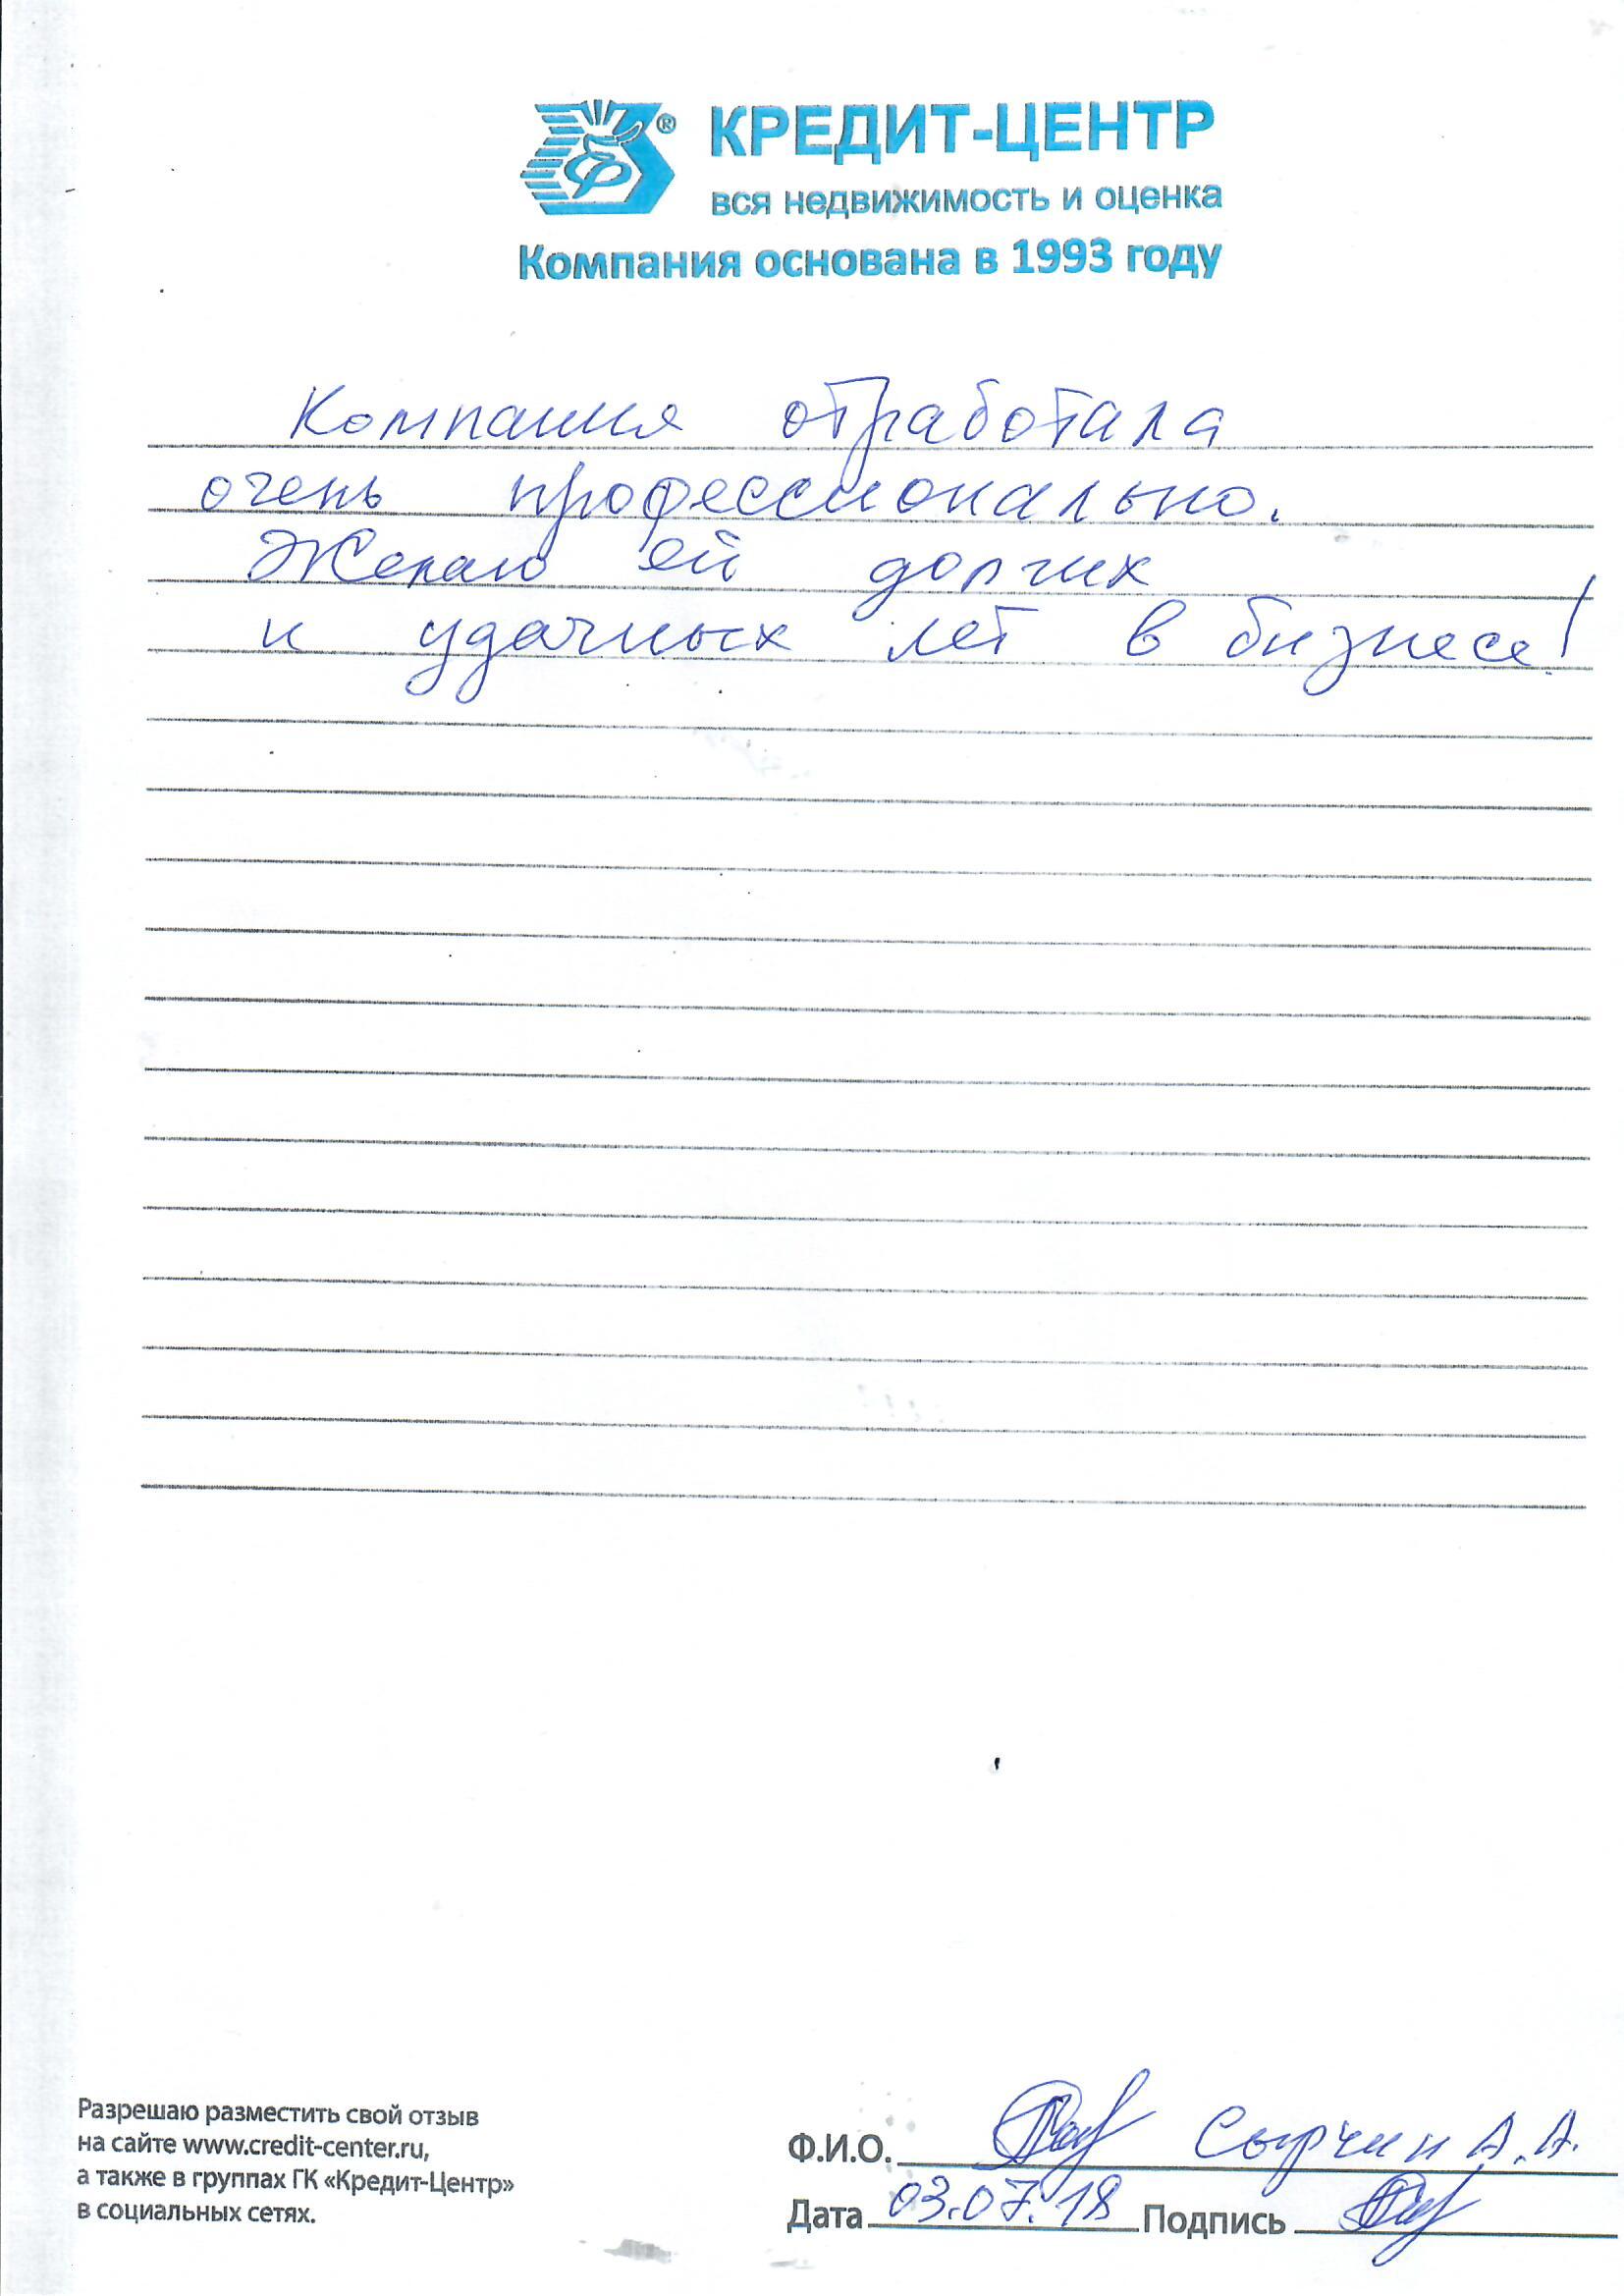 КРЕДИТ-ЦЕНТР
вся недвижимость и оценка
Компания основана в 1993 году
Компания отработала
очень профессионально.
Желаю ей долгих
и удачных лет в бизнесе!
Разрешаю разместить свой отзыв
на сайте www.credit-center.ru,
а также в группах ГК «Кредит-Центр»
в социальных сетях.
Ф.И.О. Сырчин А.А.
Дата 03.07.18 Подпись